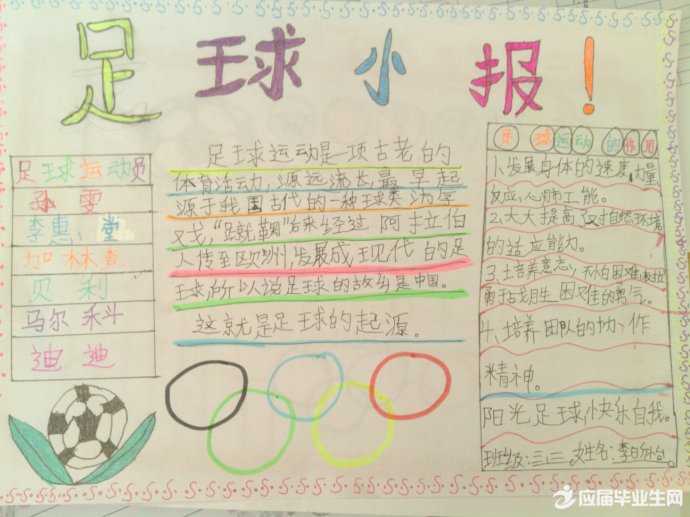 足球小报！
足球运动员
孙雯
李惠堂
加林查
贝利
马尔禾斗
迪迪
足王球运动是一项古老的
体育活动，源远流长最早起
源于我国古代的一种球类游
戏，“蹴鞠”后来经过阿拉伯
人传至欧州，发展成现代的足
球，所以说足球的故乡是中国。
这就是足球的起源。
足球运动的作用
1.发展身体的速度力量
反应，心肺工能。
2.大大提高仅对自然环境
的适应能力。
3.培养意志，不怕困难敢
勇于战胜困难的勇气。
4.培养团队的协作
精神。
阳光足球，快乐自我。
班级：三二 姓名：李
应届毕业生网